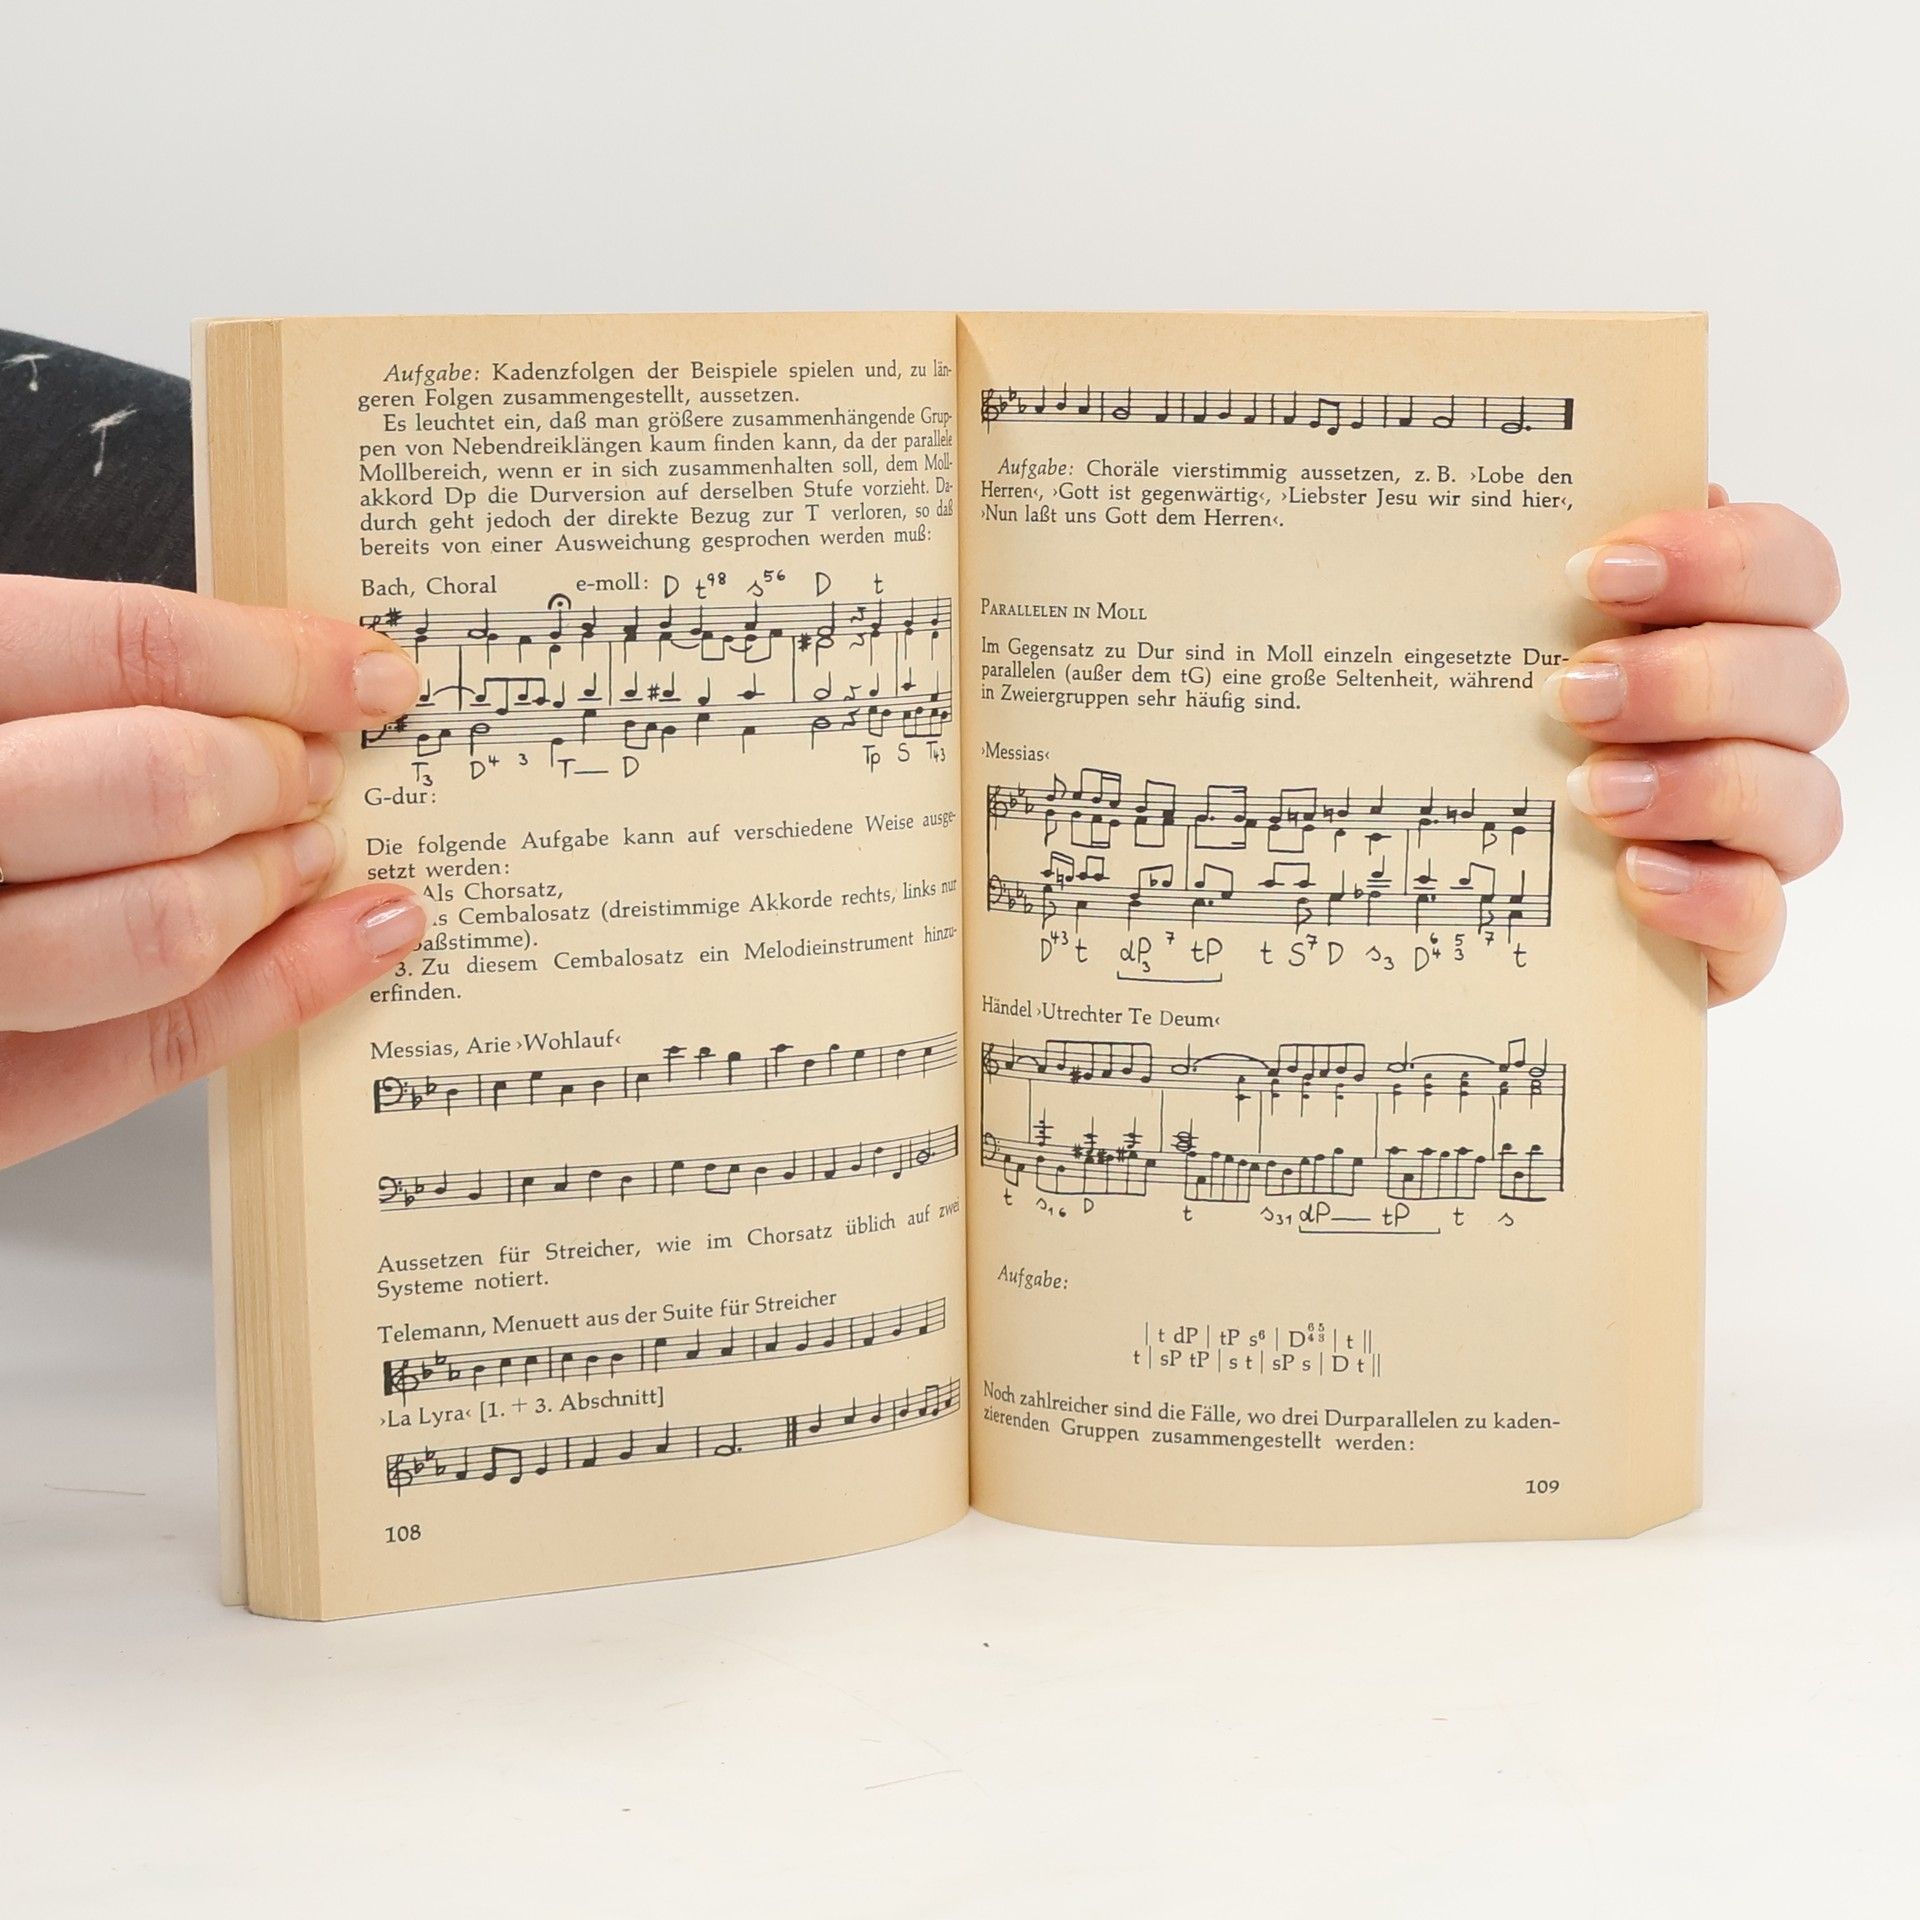 Aufgabe: Kadenzfolgen der Beispiele spielen und, zu län-
geren Folgen zusammengestellt, aussetzen.
Es leuchtet ein, daß man größere zusammenhängende Grup-
pen von Nebendreiklängen kaum finden kann, da der parallele
Mollbereich, wenn er in sich zusammenhalten soll, dem Moll-
akkord Dp die Durversion auf derselben Stufe vorzieht. Da-
durch geht jedoch der direkte Bezug zur T verloren, so daß
bereits von einer Ausweichung gesprochen werden muß:
Bach, Choral e-moll: D t⁹⁸ s⁵⁶ D t
T₃ D⁴ ³ T— D Tp S T₄₃
G-dur:
Die folgende Aufgabe kann auf verschiedene Weise ausge-
setzt werden:
Als Chorsatz,
Cembalosatz (dreistimmige Akkorde rechts, links nur
3. Zu diesem Cembalosatz ein Melodieinstrument hinzu-
erfinden.
Messias, Arie ›Wohlauf‹
Aussetzen für Streicher, wie im Chorsatz üblich auf zwei
Systeme notiert.
Telemann, Menuett aus der Suite für Streicher
›La Lyra‹ [1. + 3. Abschnitt]
108
Aufgabe: Choräle vierstimmig aussetzen, z. B. ›Lobe den
Herren‹, ›Gott ist gegenwärtig‹, ›Liebster Jesu wir sind hier‹,
›Nun laßt uns Gott dem Herren‹.
PARALLELEN IN MOLL
Im Gegensatz zu Dur sind in Moll einzeln eingesetzte Dur-
parallelen (außer dem tG) eine große Seltenheit, während
in Zweiergruppen sehr häufig sind.
›Messias‹
D⁴³ t dP₃ ⁷ tP t S⁷ D s₃ D⁶₄ ⁵₃ ⁷ t
Händel ›Utrechter Te Deum‹
t s₁₆ D t s₃₁ dP— tP t s
Aufgabe:
| t dP | tP s⁶ | D⁶⁵₄₃ | t ||
t | sP tP | s t | sP s | D t ||
Noch zahlreicher sind die Fälle, wo drei Durparallelen zu kaden-
zierenden Gruppen zusammengestellt werden:
109